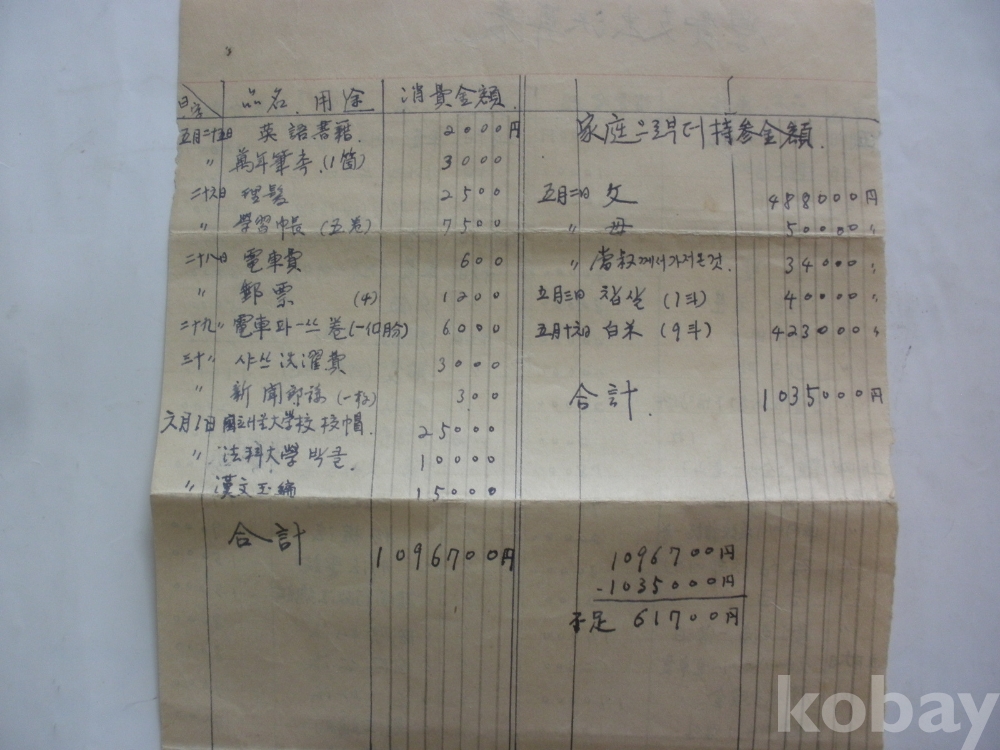 日字 品名 用途 消費金額
五月二十五日 英語書籍 2000円
〃 萬年筆 (1箇) 3000
二十六日 理髮 2500
〃 學習帳 (五卷) 7500
二十八日 電車費 600
〃 郵票 (4) 1200
二十九〃 電車 (一個月分) 6000
三十〃 샤쓰洗濯費 3000
〃 新聞 (一枚) 300
六月1日 國立서울大学校 校帽 25000
〃 法科大學 박클 10000
〃 漢文玉編 15000
合計 1096700円
家庭으로부터 持參金額
五月二日 父 488000円
〃 母 50000〃
〃 堂叔께서가저온것. 34000〃
五月三日 찹쌀 (1斗) 40000〃
五月十六日 白米 (9斗) 423000〃
合計 1035000円
1096700円
-1035000円
不足 61700円
kobay